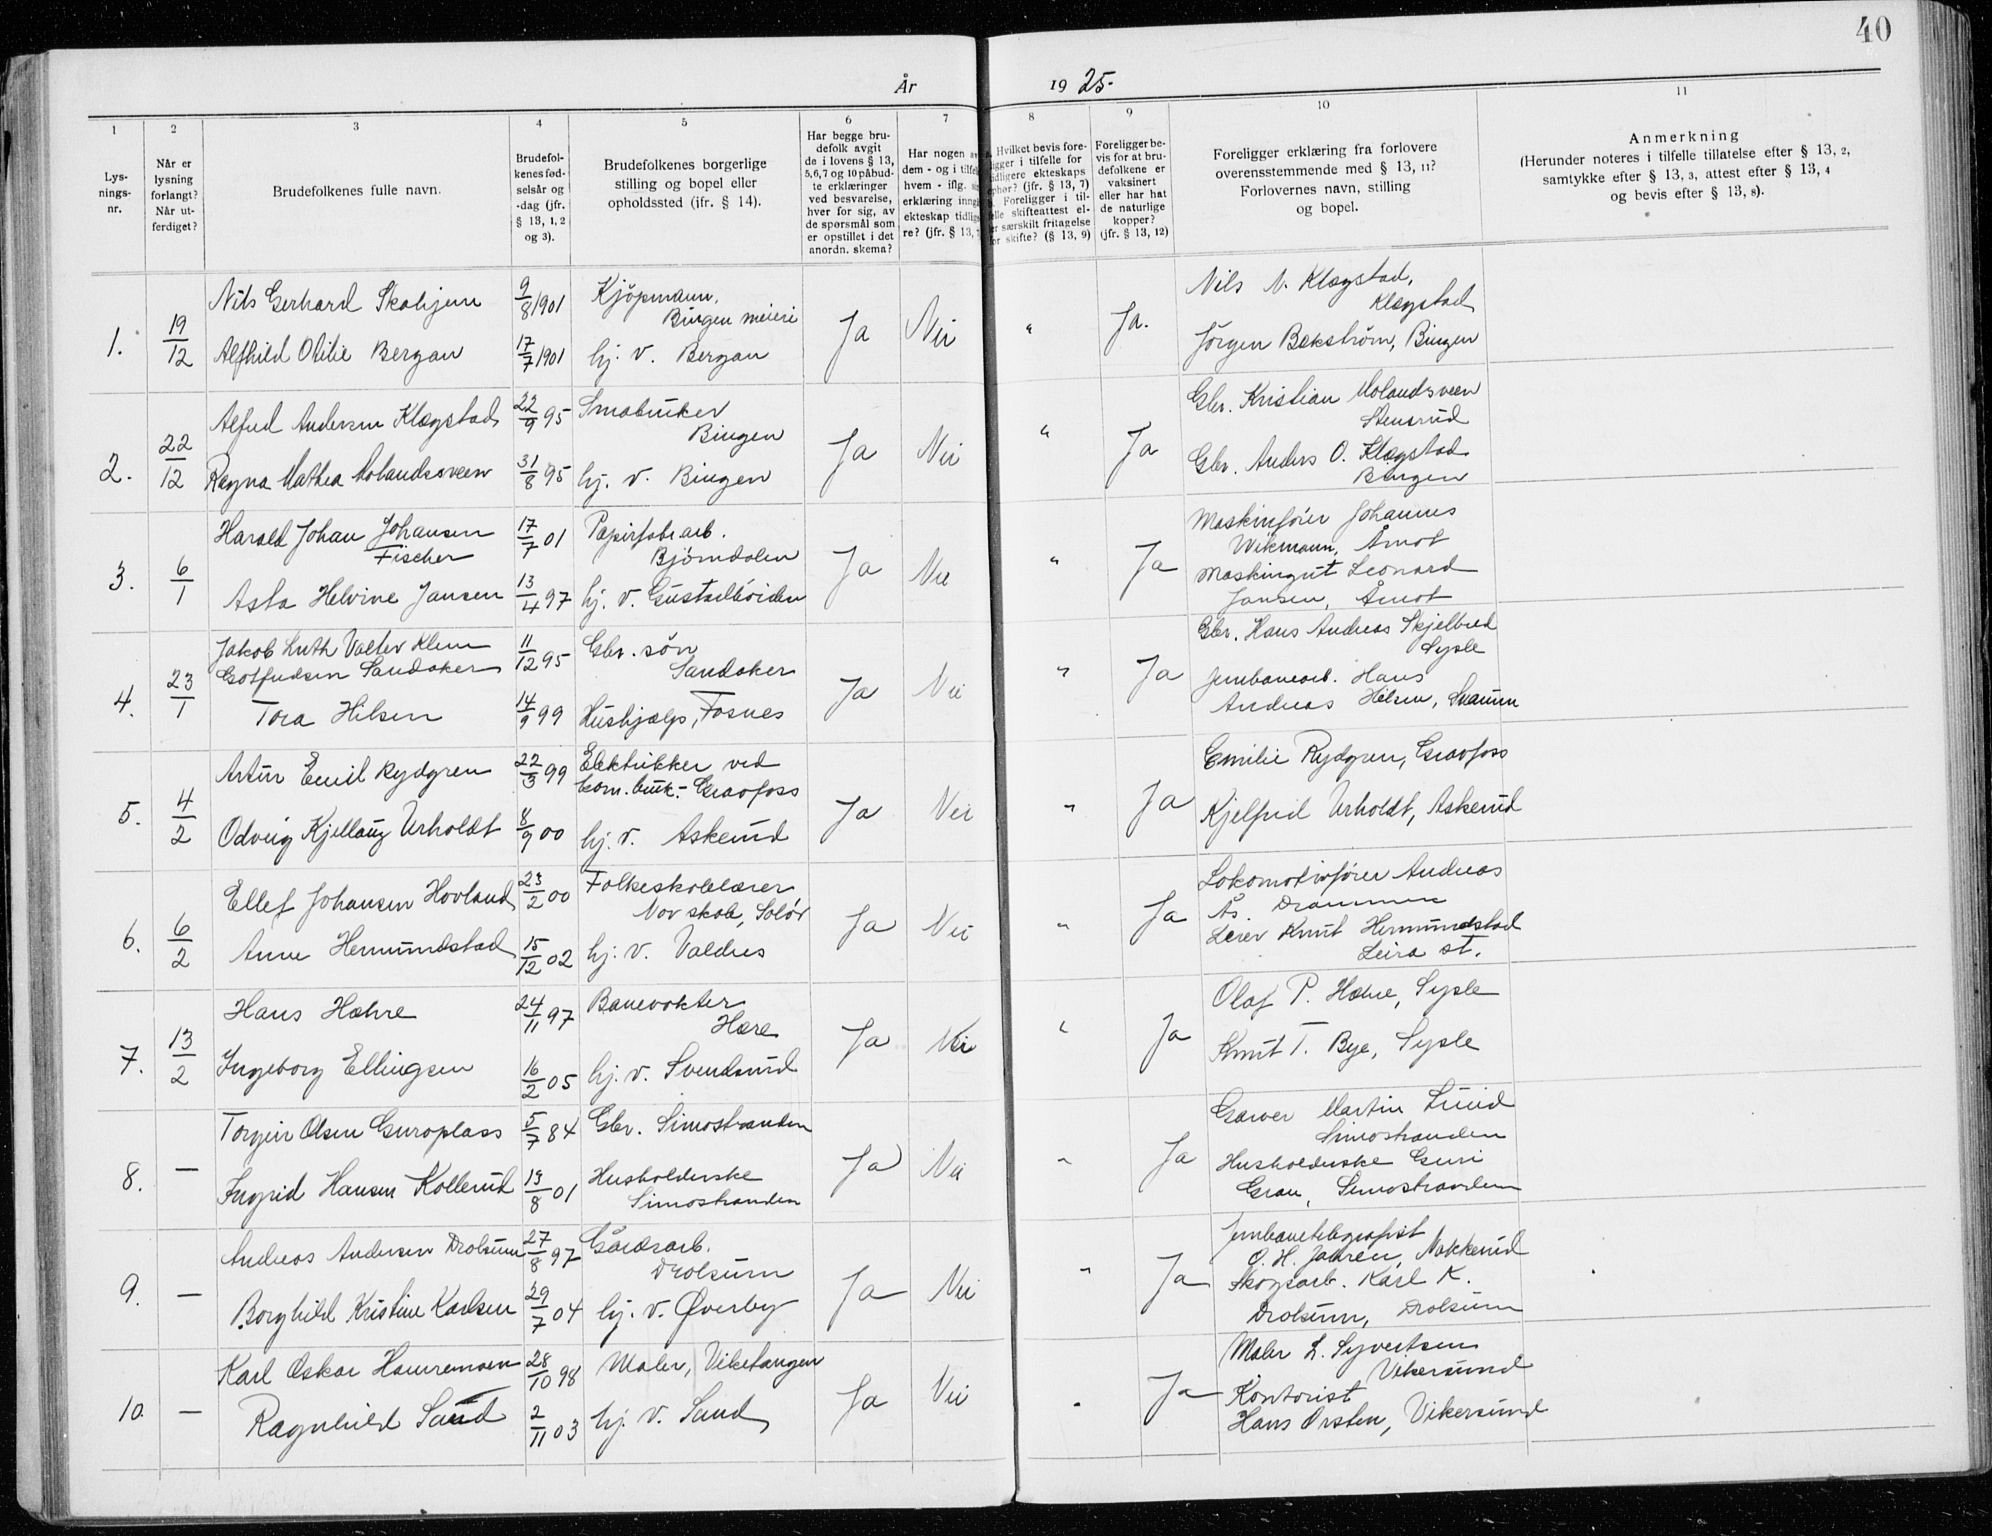 40
År 1925.
1 2 3 4 5 6 7 8 9 10 11
Lysningsnr.
Når er lysning forlangt? Når utferdiget?
Brudefolkenes fulle navn.
Brudefolkenes fødselsår og -dag (jfr. § 13, 1, 2 og 3).
Brudefolkenes borgerlige stilling og bopel eller opholdssted (ifr. § 14).
Har begge brudefolk avgit de i lovens § 13, 5,6,7 og 10 påbudte erklæringer ved besvarelse, hver for sig, av de spørsmål som er opstillet i det anordn. skema?
Har nogen av dem - og i tilfelle hvem - iflg. erklæring inngått ekteskap tidligere? (jfr. § 13,
Hvilket bevis foreligger i tilfelle for tidligere ekteskaps ophør? (jfr. § 13, 7) Foreligger i tilfelle skifteattest eller særskilt fritagelse for skifte? (§ 13, 9)
Foreligger bevis for at brudefolkene er vaksinert eller har hat de naturlige kopper? (jfr. § 13, 12)
Foreligger erklæring fra forlovere overensstemmende med § 13, 11? Forlovernes navn, stilling og bopel.
Anmerkning
(Herunder noteres i tilfelle tillatelse efter § 13, 2, samtykke efter § 13, 3, attest efter § 13, 4 og bevis efter § 13, 8).
1. 19/12 Nils Gerhard Skahjem 9/8 1901 Kjöpmann, Bingen meieri Ja Nei " Ja. Nils N. Klægstad, Klægstad
Alfhild Otilie Bergan 17/7 1901 hj. v. Bergan Jörgen Bekstrøm, Bingen
2. 22/12 Alfred Andersen Klægstad 22/9 95 Småbruker Bingen Ja Nei " Ja Gbr. Kristian Molandsveen Stensrud
Ragna Mathea Molandsveen 31/8 95 hj. v. Bingen Gbr. Anders O. Klægstad Bingen
3. 6/1 Harald Johan Johansen Fischer 17/7 01 Papirfabr.arb. Björndalen Ja Nei " Ja Maskinförer Johannes Wikmann, Åmot
Asta Helvine Jansen 13/4 97 hj. v. Gustadhöiden Maskingut Leonard Jansen, Åmot
4. 23/1 Jakob Luth Valter Klem Gotfredsen Sandaker 11/12 95 Gbr. sön Sandaker Ja Nei " Ja Gbr. Hans Andreas Skjelbred Sysle
Tora Hilsen 14/9 99 Hushjælp, Fosnes Jernbanearb. Hans Andreas Hilsen, Snarum
5. 4/2 Artur Emil Rydgren 22/3 99 Elektriker ved kom. bruk. Gravfoss Ja Nei " Ja Emilie Rydgren, Gravfoss
Odveig Kjellaug Urholdt 8/9 00 hj. v. Askerud Kjelfred Urholdt, Askerud
6. 6/2 Ellef Johansen Hovland 23/2 00 Folkeskolelærer Nor skole, Solör Ja Nei " Ja Lokomotivförer Andreas Ås. Drammen
Anne Hermundstad 15/12 02 hj. v. Valdres Lærer Knut Hermundstad Leira st.
7. 13/2 Hans Hæhre 24/11 97 Banevokter Hære Ja Nei " Ja Olaf P. Hæhre, Sysle
Ingeborg Ellingsen 16/2 05 hj. v. Svendsrud Knut T. Bye, Sysle
8. — Torgeir Olsen Guroplass 5/7 84 Gbr. Simostranden Ja Nei " Ja Garver Martin Lund Simostranden
Ingrid Hansen Kollerud 19/8 01 Husholderske Simostranden Husholderske Guri Grau, Simostranden
9. — Andreas Andersen Drolsum 27/8 97 Gårdsarb. Drolsum Ja Nei " Ja Jernbanetelegrafist O. H. Jahren, Nakkerud
Borghild Kristine Karlsen 29/7 04 hj. v. Øverby Skogsarb. Karl K. Drolsum, Drolsum
10. — Karl Oskar Hamremoen 28/10 98 Maler, Viketangen Ja Nei " Ja Maler L. Syvertsen Vikersund
Ragnhild Sand 2/11 03 hj. v. Sand Kontorist Hans Orsten, Vikersund